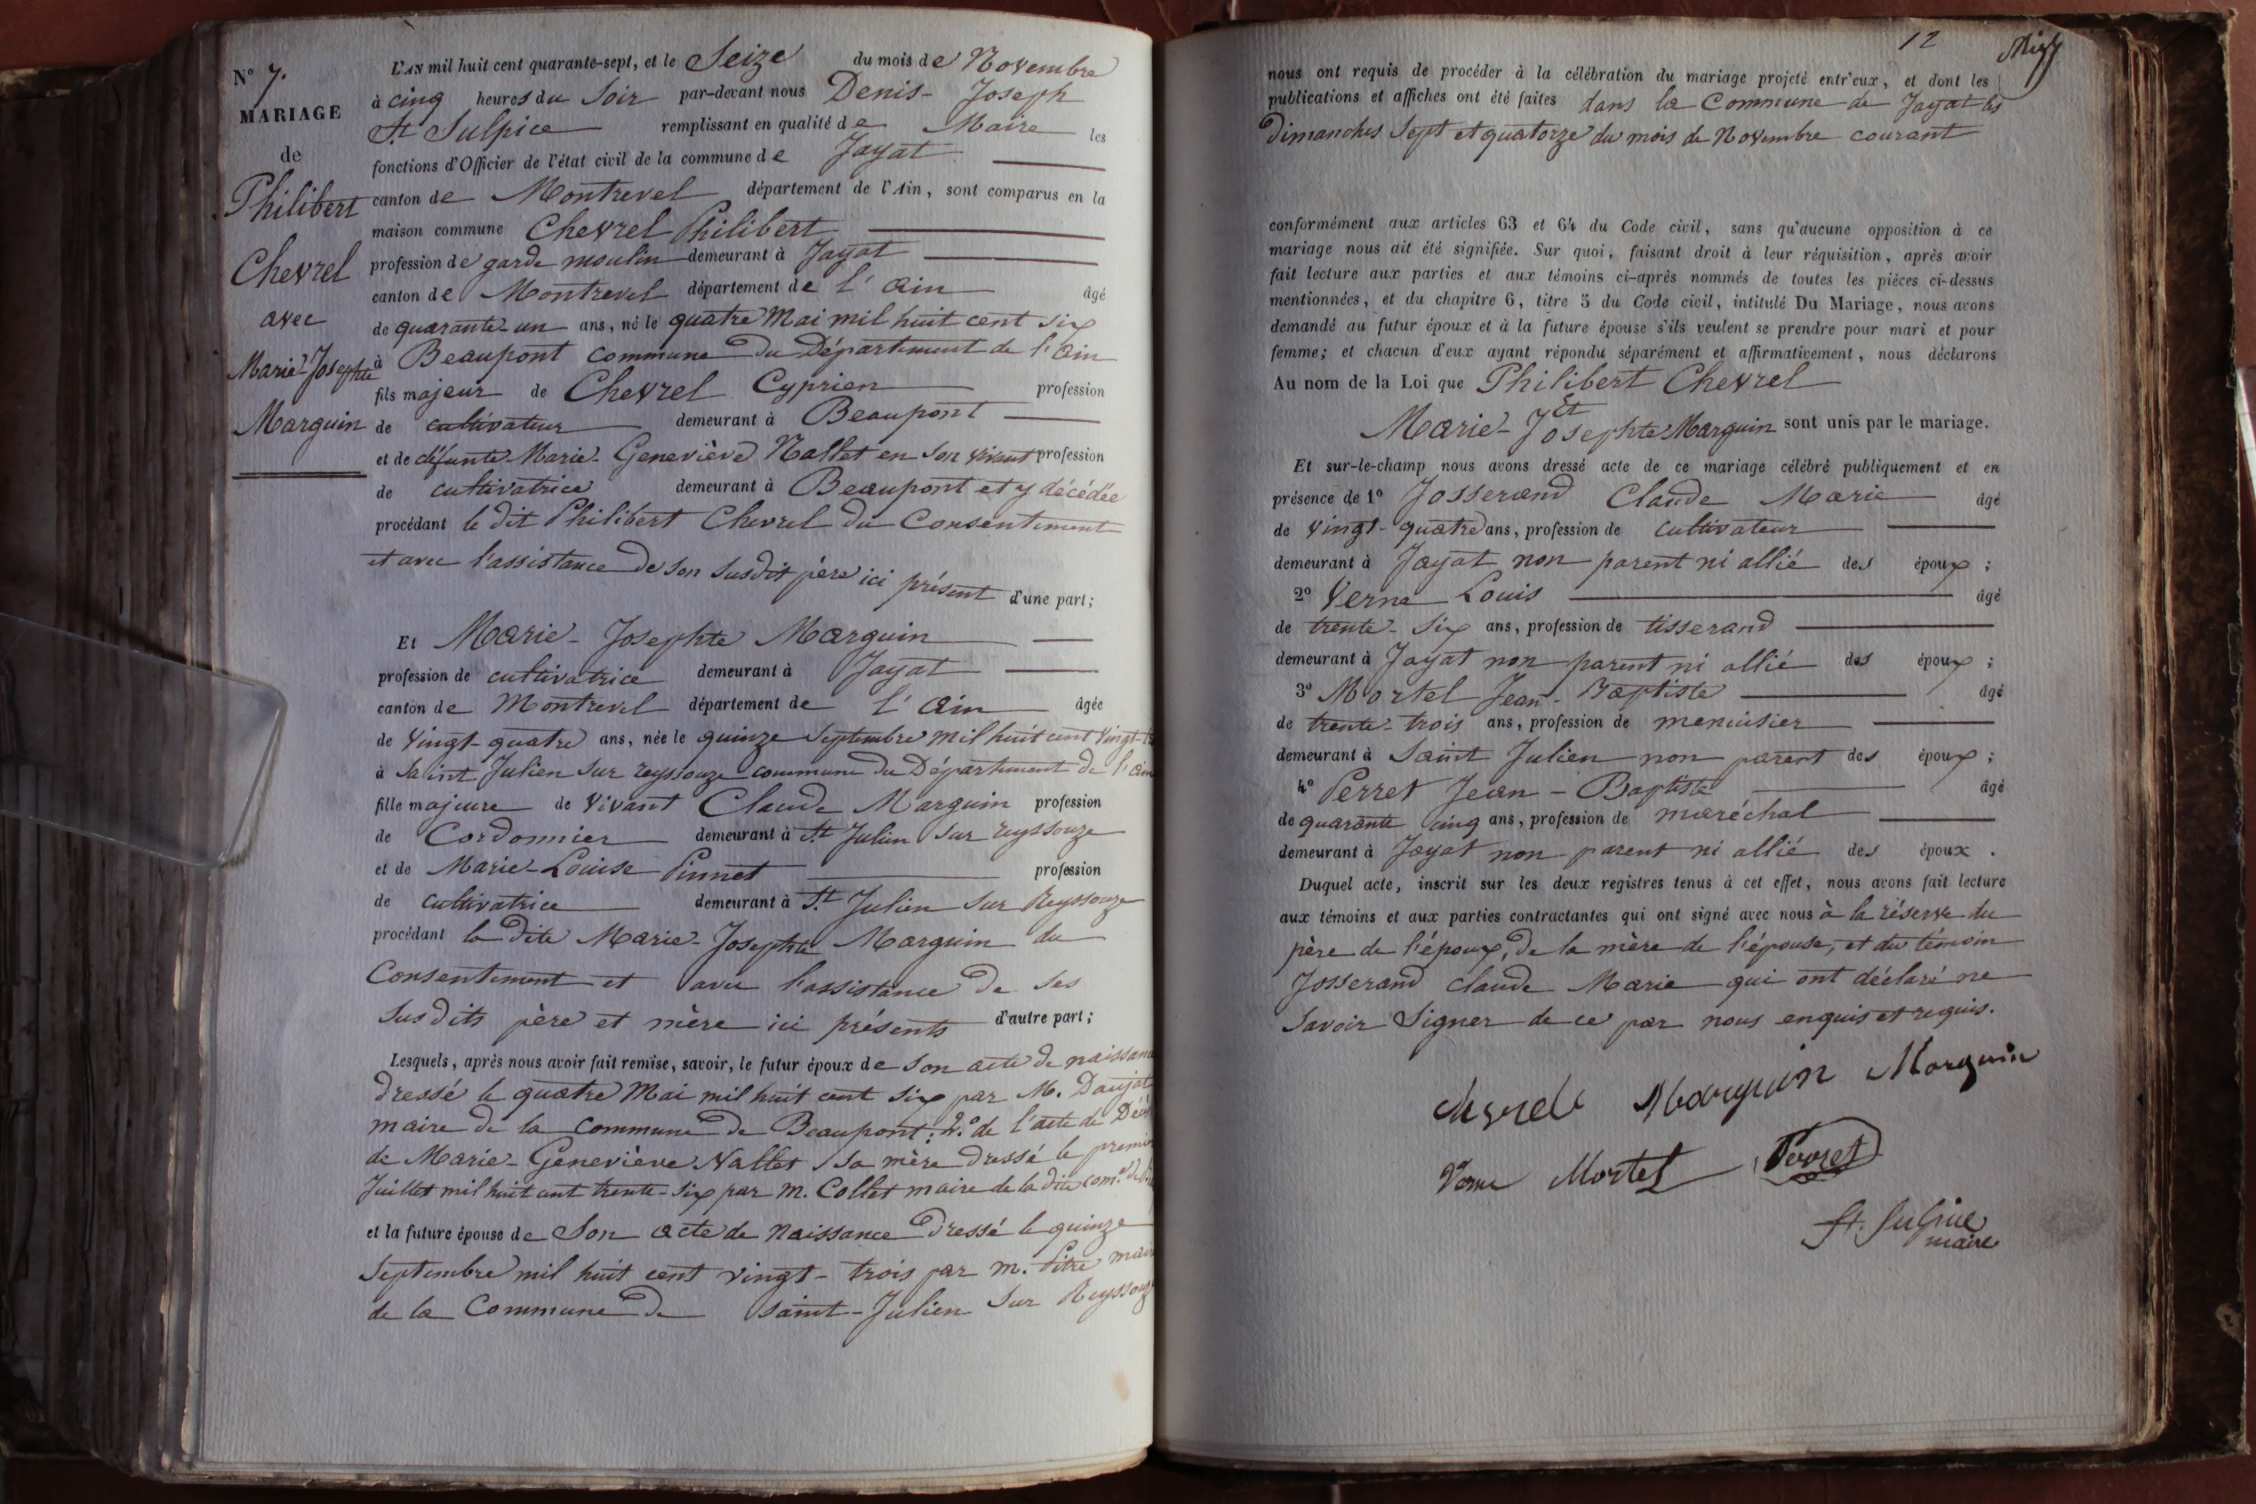 N° 7.
MARIAGE
de
Philibert
Chevrel
avec
Marie-Josephte
Marguin
L'AN mil huit cent quarante-sept, et le Seize du mois de Novembre
à cinq heures du Soir par-devant nous Denis-Joseph
St. Sulpice remplissant en qualité de Maire les
fonctions d'Officier de l'état civil de la commune de Jayat
canton de Montrevel département de l'Ain, sont comparus en la
maison commune Chevrel Philibert
profession de garde moulin demeurant à Jayat
canton de Montrevel département de l'ain âgé
de quarante-un ans, né le quatre Mai mil huit cent six
à Beaupont commune du Département de l'ain
fils majeur de Chevrel Cyprien profession
de cultivateur demeurant à Beaupont
et de défunte Marie-Geneviève Nallet en son vivant profession
de cultivatrice demeurant à Beaupont et y décédée
procédant le dit Philibert Chevrel du Consentement
et avec l'assistance de son susdit père ici présent d'une part;
Et Marie-Josephte Marguin
profession de cultivatrice demeurant à Jayat
canton de Montrevel département de l'ain âgée
de vingt-quatre ans, née le quinze septembre mil huit cent vingt-
à Saint Julien sur reyssouze commune du Département de l'ain
fille majeure de vivant Claude Marguin profession
de Cordonnier demeurant à St. Julien sur reyssouze
et de Marie-Louise Pinnet profession
de cultivatrice demeurant à St. Julien sur Reyssouze
procédant la dite Marie-Josephte Marguin du
Consentement et avec l'assistance de ses
susdits père et mère ici présents d'autre part;
Lesquels, après nous avoir fait remise, savoir, le futur époux de son acte de naissance
dressé le quatre Mai mil huit cent six par M. Daujat
maire de la commune de Beaupont; 2.° de l'acte de Décès
de Marie-Geneviève Nallet sa mère dressé le premier
Juillet mil huit cent trente-six par M. Collet maire de la dite com.e
et la future épouse de Son acte de Naissance dressé le quinze
septembre mil huit cent vingt-trois par m. Pitre maire
de la Commune de Saint-Julien sur Reyssouze
12
nous ont requis de procéder à la célébration du mariage projeté entr'eux, et dont les
publications et affiches ont été faites dans la Commune de Jayat les
Dimanches Sept et quatorze du mois de Novembre courant
conformément aux articles 63 et 64 du Code civil, sans qu'aucune opposition à ce
mariage nous ait été signifiée. Sur quoi, faisant droit à leur réquisition, après avoir
fait lecture aux parties et aux témoins ci-après nommés de toutes les pièces ci-dessus
mentionnées, et du chapitre 6, titre 5 du Code civil, intitulé Du Mariage, nous avons
demandé au futur époux et à la future épouse s'ils veulent se prendre pour mari et pour
femme; et chacun d'eux ayant répondu séparément et affirmativement, nous déclarons
Au nom de la Loi que Philibert Chevrel
Et
Marie-Josephte Marguin sont unis par le mariage.
Et sur-le-champ nous avons dressé acte de ce mariage célébré publiquement et en
présence de 1° Josserand Claude Marie âgé
de vingt-quatre ans, profession de cultivateur
demeurant à Jayat non parent ni allié des époux;
2° Verne Louis âgé
de trente-six ans, profession de tisserand
demeurant à Jayat non parent ni allié des époux;
3° Mortel Jean-Baptiste âgé
de trente-trois ans, profession de menuisier
demeurant à Saint Julien non parent des époux;
4° Perret Jean-Baptiste âgé
de quarante cinq ans, profession de maréchal
demeurant à Jayat non parent ni allié des époux.
Duquel acte, inscrit sur les deux registres tenus à cet effet, nous avons fait lecture
aux témoins et aux parties contractantes qui ont signé avec nous à la réserve du
père de l'époux, de la mère de l'épouse, et du témoin
Josserand Claude Marie qui ont déclaré ne
savoir signer de ce par nous enquis et requis.
chevrel Marguin Marguin
Verne Mortel Perret
St. Sulpice
maire